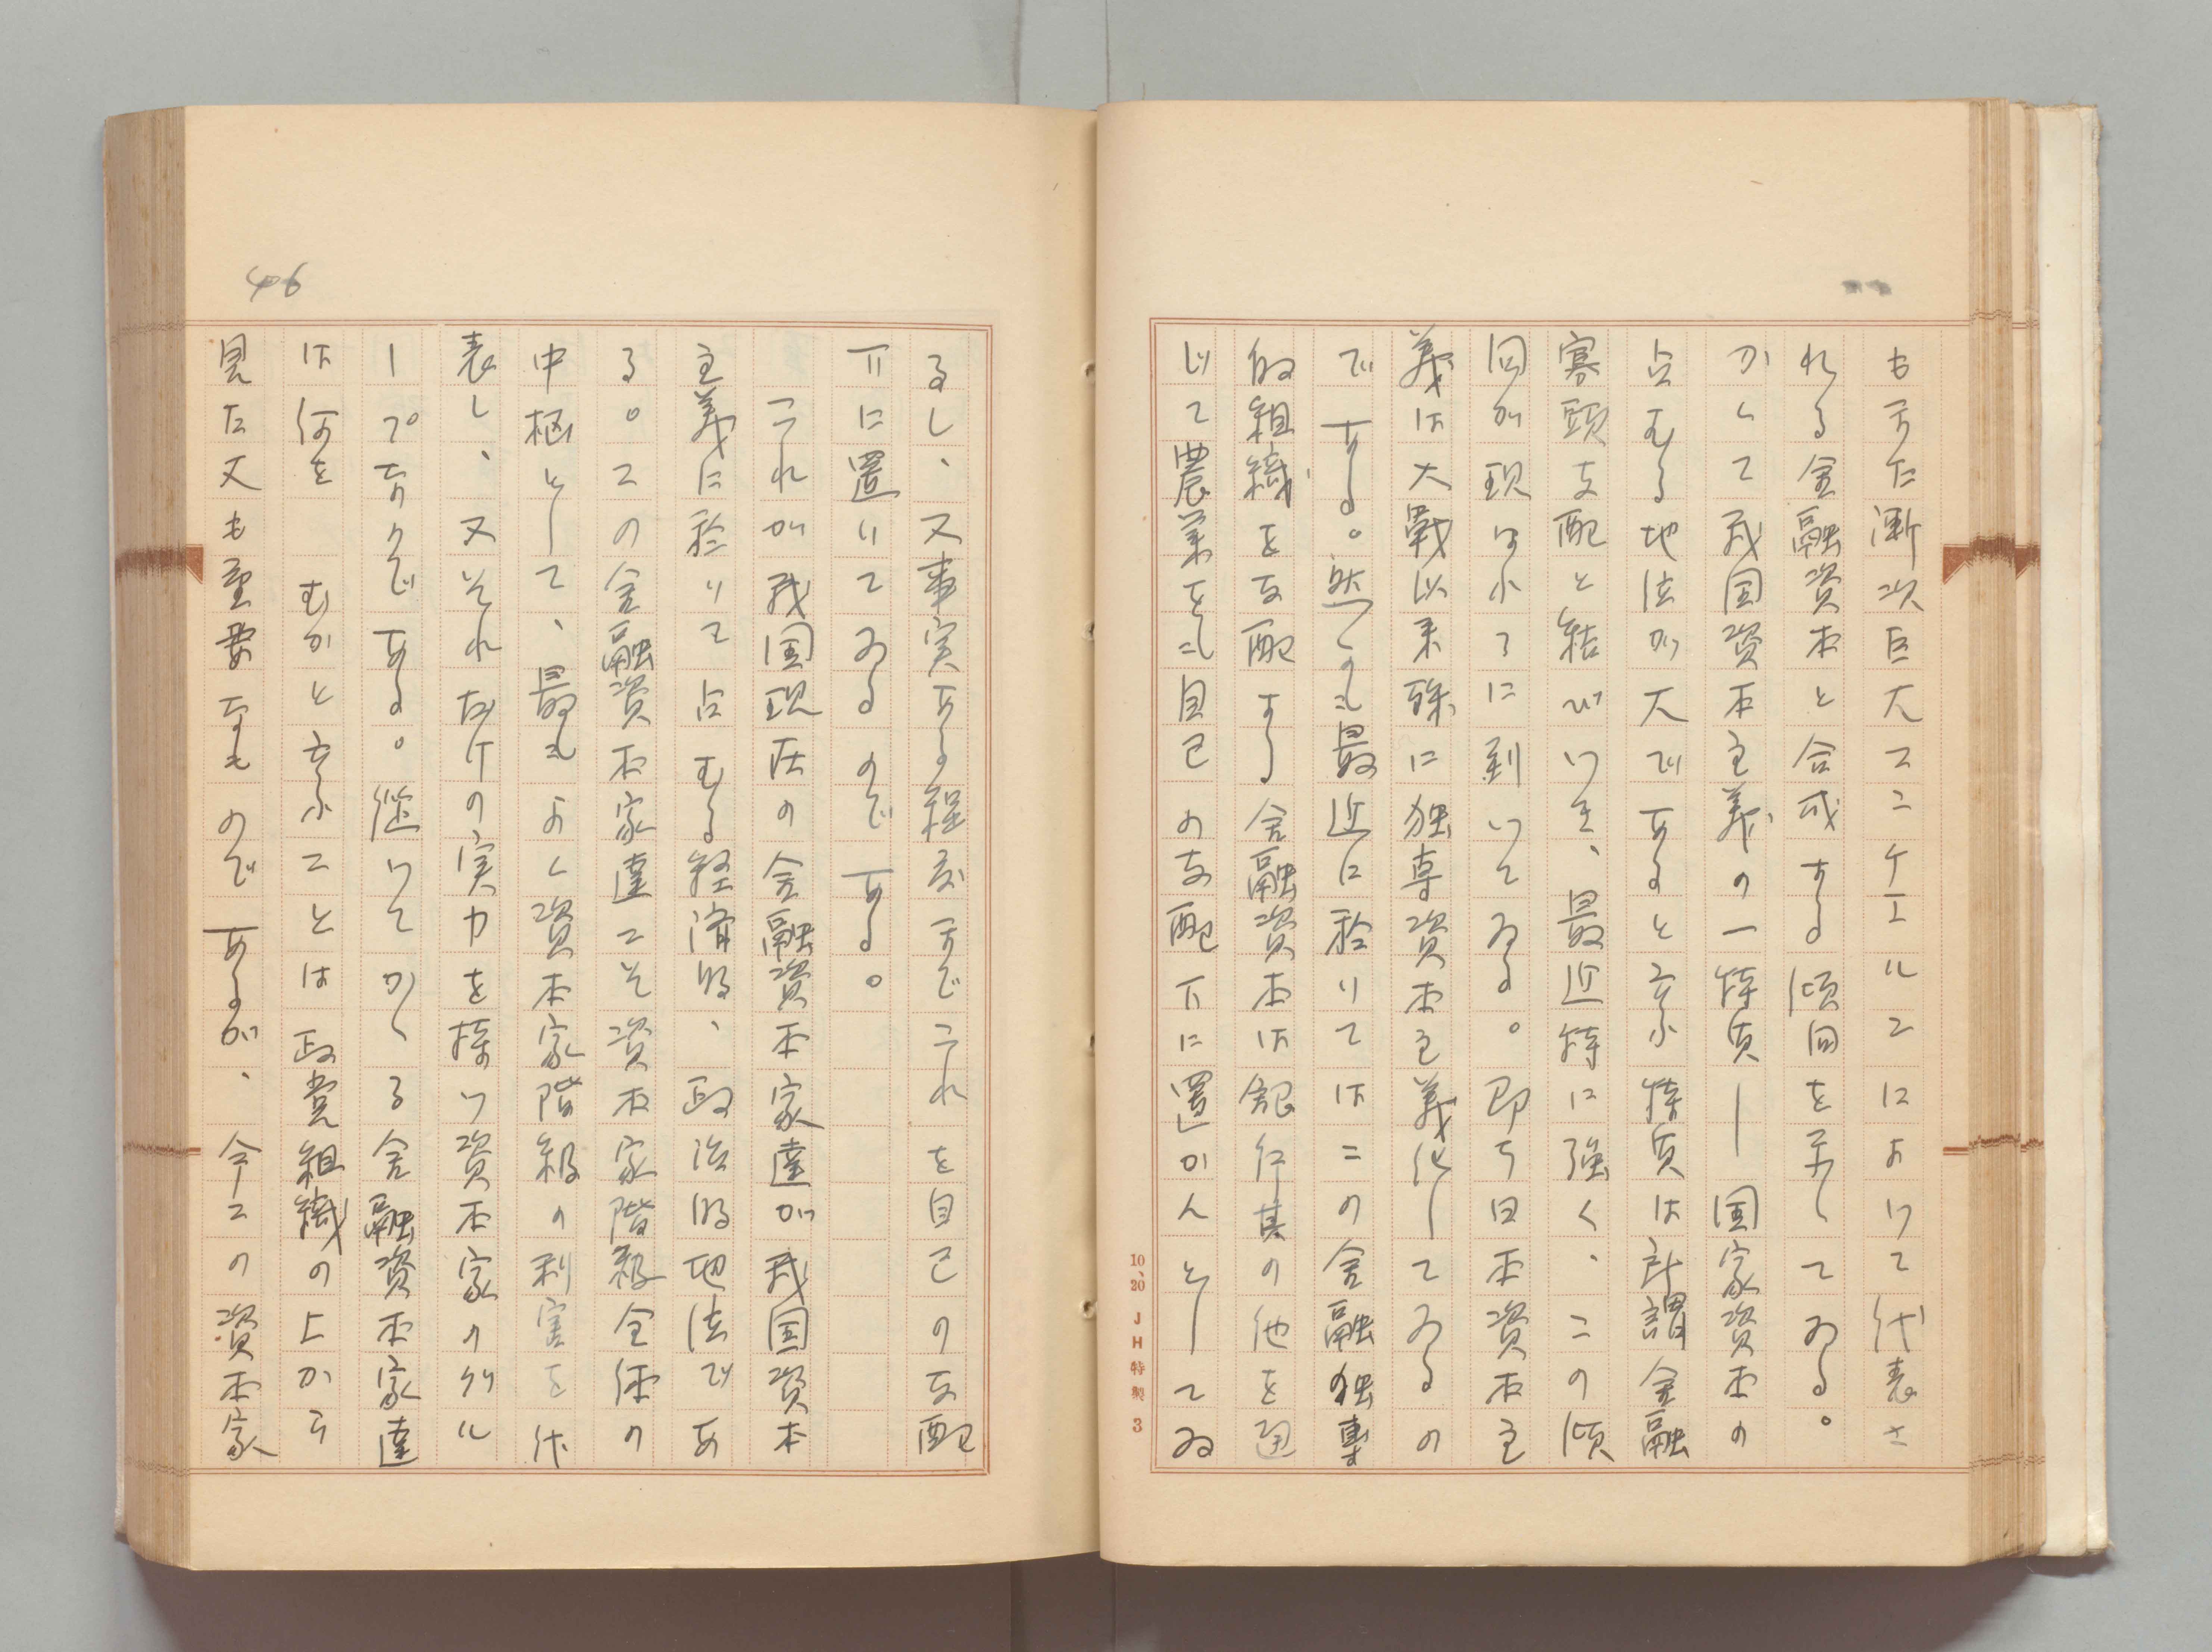 も亦た漸次巨大コンケエルンによつて代表さ
れる金融資本と合成する傾向を示してゐる。
かくて我国資本主義の一特質―国家資本の
占むる地位が大であると云ふ特質は所謂金融
寡頭支配と結びつき、最近特に強く、この傾
向が現はれるに到つてゐる。即ち日本資本主
義は大戦以来殊に独専資本主義化してゐるの
である。然しのも最近に於いてはこの金融独専
的組織を支配する金融資本は銀行其の他を通
じて農業をも自己の支配下に置かんとしてゐ
10、20 JH特製 3
46
るし、又事実ある程度までこれを自己の支配
下に置いてゐるのである。
これが我国現在の金融資本家達が我国資本
主義に於いて占むる経済的、政治的地位であ
る。この金融資本家達こそ資本家階級全体の
中枢として、最もよく資本家階級の利害を代
表し、又それだけの実力を持つ資本家のグル
ープなのである。従つてかくる金融資本家達
は何を むかと云ふことは政党組織の上から
見た又も重要なものであるが、今この資本家